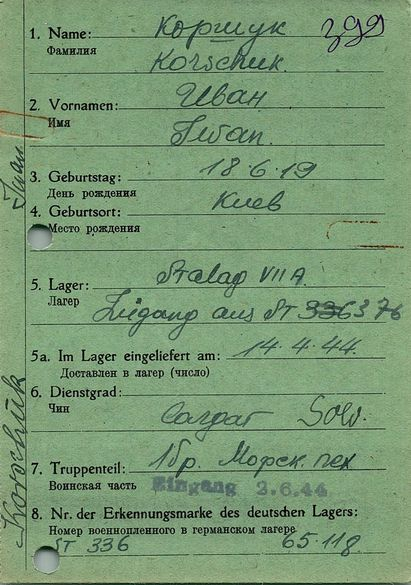 1. Name: Коршук 399
Фамилия
Korschuk.
2. Vornamen: Иван
Имя
Iwan.
3. Geburtstag: 18.6.19
День рождения
4. Geburtsort: Киев
Место рождения
5. Lager: Stalag VII A.
Лагер
Zugang aus ST 336 376
5a. Im Lager eingeliefert am: 14.4.44.
Доставлен в лагер (число)
6. Dienstgrad:
Чин
Солдат Sold.
7. Truppenteil: 1 бр. Морск. пех
Воинская часть Eingang 2.6.44
8. Nr. der Erkennungsmarke des deutschen Lagers:
Номер военнопленного в германском лагере
ST 336 65118
Korschuk Iwan